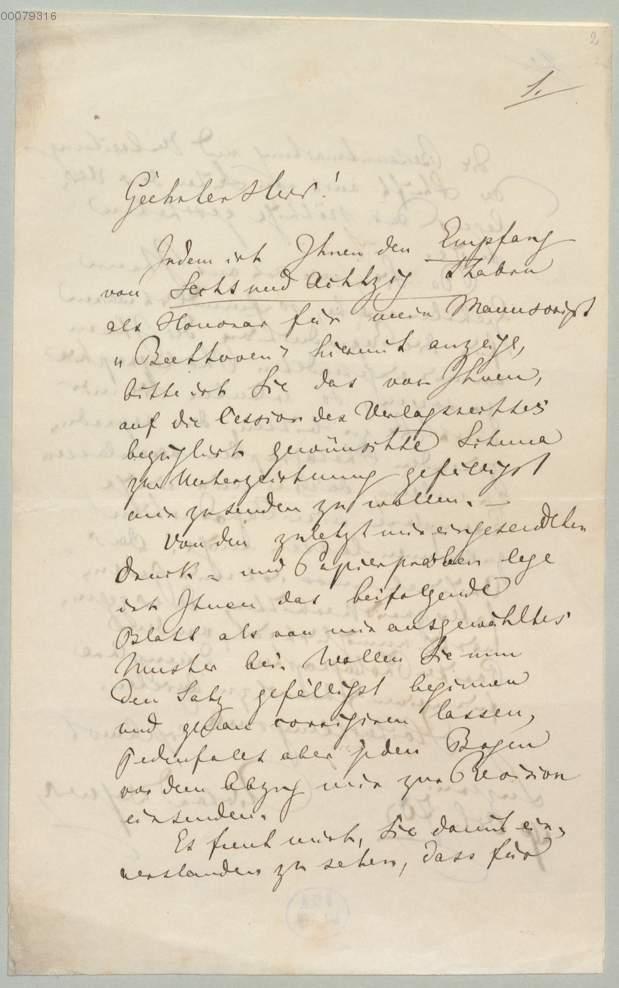 00079316
2
1.
Geehrtester Herr!
Indem ich Ihnen den Empfang
von Sechs und Achtzig Thalern
als Honorar für mein Manuscript
„Beethoven” hiermit anzeige,
bitte ich Sie das von Ihnen,
auf die Cession des Verlagsrechtes
bezüglich gewünschte Schema
zur Unterzeichnung gefälligst
mir zusenden zu wollen. —
Von den zuletzt mir eingesendeten
Druck- und Papierproben lege
ich Ihnen das beifolgende
Blatt als von mir ausgewähltes
Muster bei. Wollen Sie nun
den Satz gefälligst beginnen
und genau corrigiren lassen,
jedenfalls aber jeden Bogen
vor dem Abzug mir zur Revision
einsenden.
Es freut mich, Sie damit ein-
verstanden zu sehen, dass für